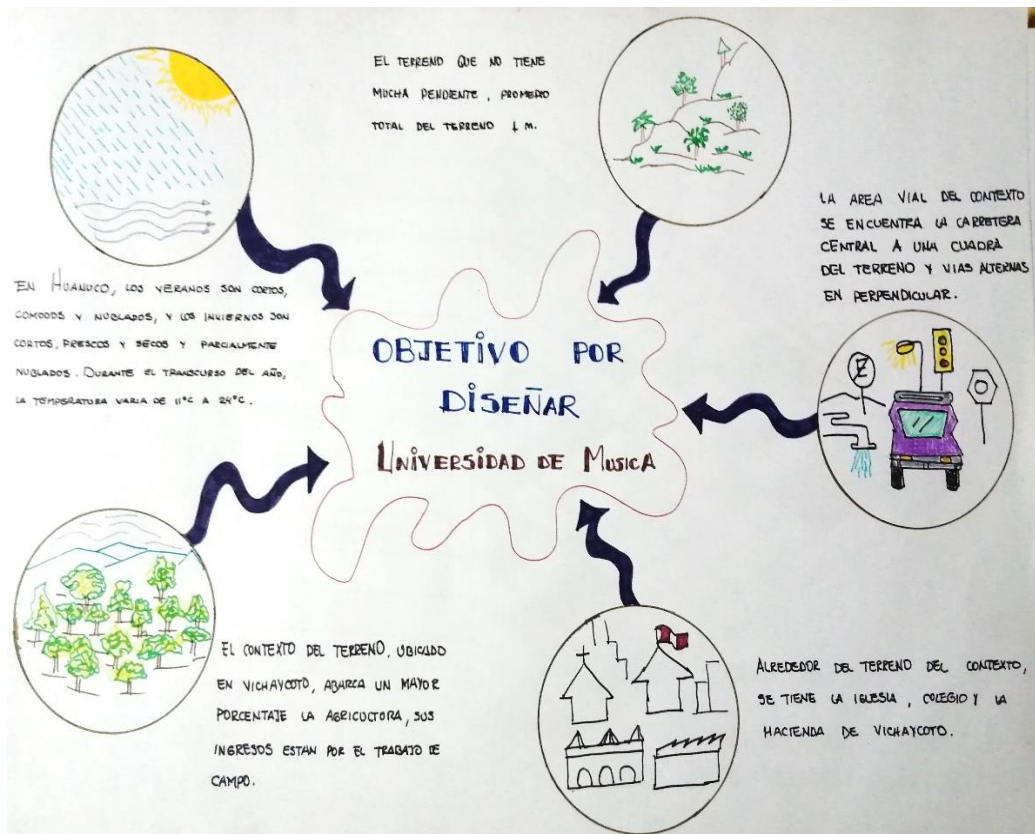 EL TERRENO QUE NO TIENE
MUCHA PENDIENTE, PROMEDIO
TOTAL DEL TERRENO 1 M.
LA AREA VIAL DEL CONTEXTO
SE ENCUENTRA LA CARRETERA
CENTRAL A UNA CUADRA
DEL TERRENO Y VIAS ALTERNAS
EN PERPENDICULAR.
EN HUANUCO, LOS VERANOS SON CORTOS,
COMODOS Y NUBLADOS, Y LOS INVIERNOS SON
CORTOS, FRESCOS Y SECOS Y PARCIALMENTE
NUBLADOS. DURANTE EL TRANSCURSO DEL AÑO,
LA TEMPERATURA VARIA DE 11°C A 24°C.
OBJETIVO POR
DISEÑAR
UNIVERSIDAD DE MUSICA
E
EL CONTEXTO DEL TERRENO, UBICADO
EN VICHAYCOTO, ABARCA UN MAYOR
PORCENTAJE LA AGRICUCTORA, SUS
INGRESOS ESTAN POR EL TRABAJO DE
CAMPO.
ALREDEDOR DEL TERRENO DEL CONTEXTO,
SE TIENE LA IGLESIA, COLEGIO Y LA
HACIENDA DE VICHAYCOTO.